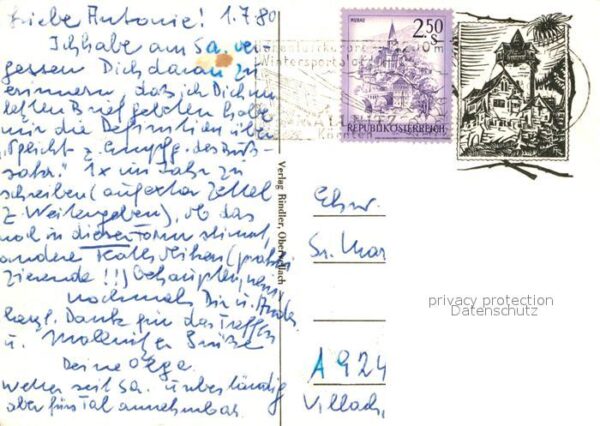 Liebe Antonie! 1.7.80
Ich habe am Sa. ver
gessen Dich daran zu
erinnern, daß ich Dich im
letzten Brief gebeten habe
mir die Definition über
"Pflicht z. Empfg. des Buß-
sakr." 1x im Jahr zu
schreiben (auf extra Zettel
z. Weitergeben), ob das
noch in dieser Form stimmt,
andere Kath.
zierende !!!) behaupten,
nochmals Dir u.
herzl. Dank für das Treffen
u. Mallnitzer Grüße
Deine Olga.
Wetter seit Sa. unbeständig
aber fürs Tal annehmbar.
Verlag Rindler, Obervellach
MURAU
2.50
S
REPUBLIK ÖSTERREICH
Wintersportplatz
Kärnten
Ehrw.
Sr. Mar
A 924
Villach,
privacy protection
Datenschutz